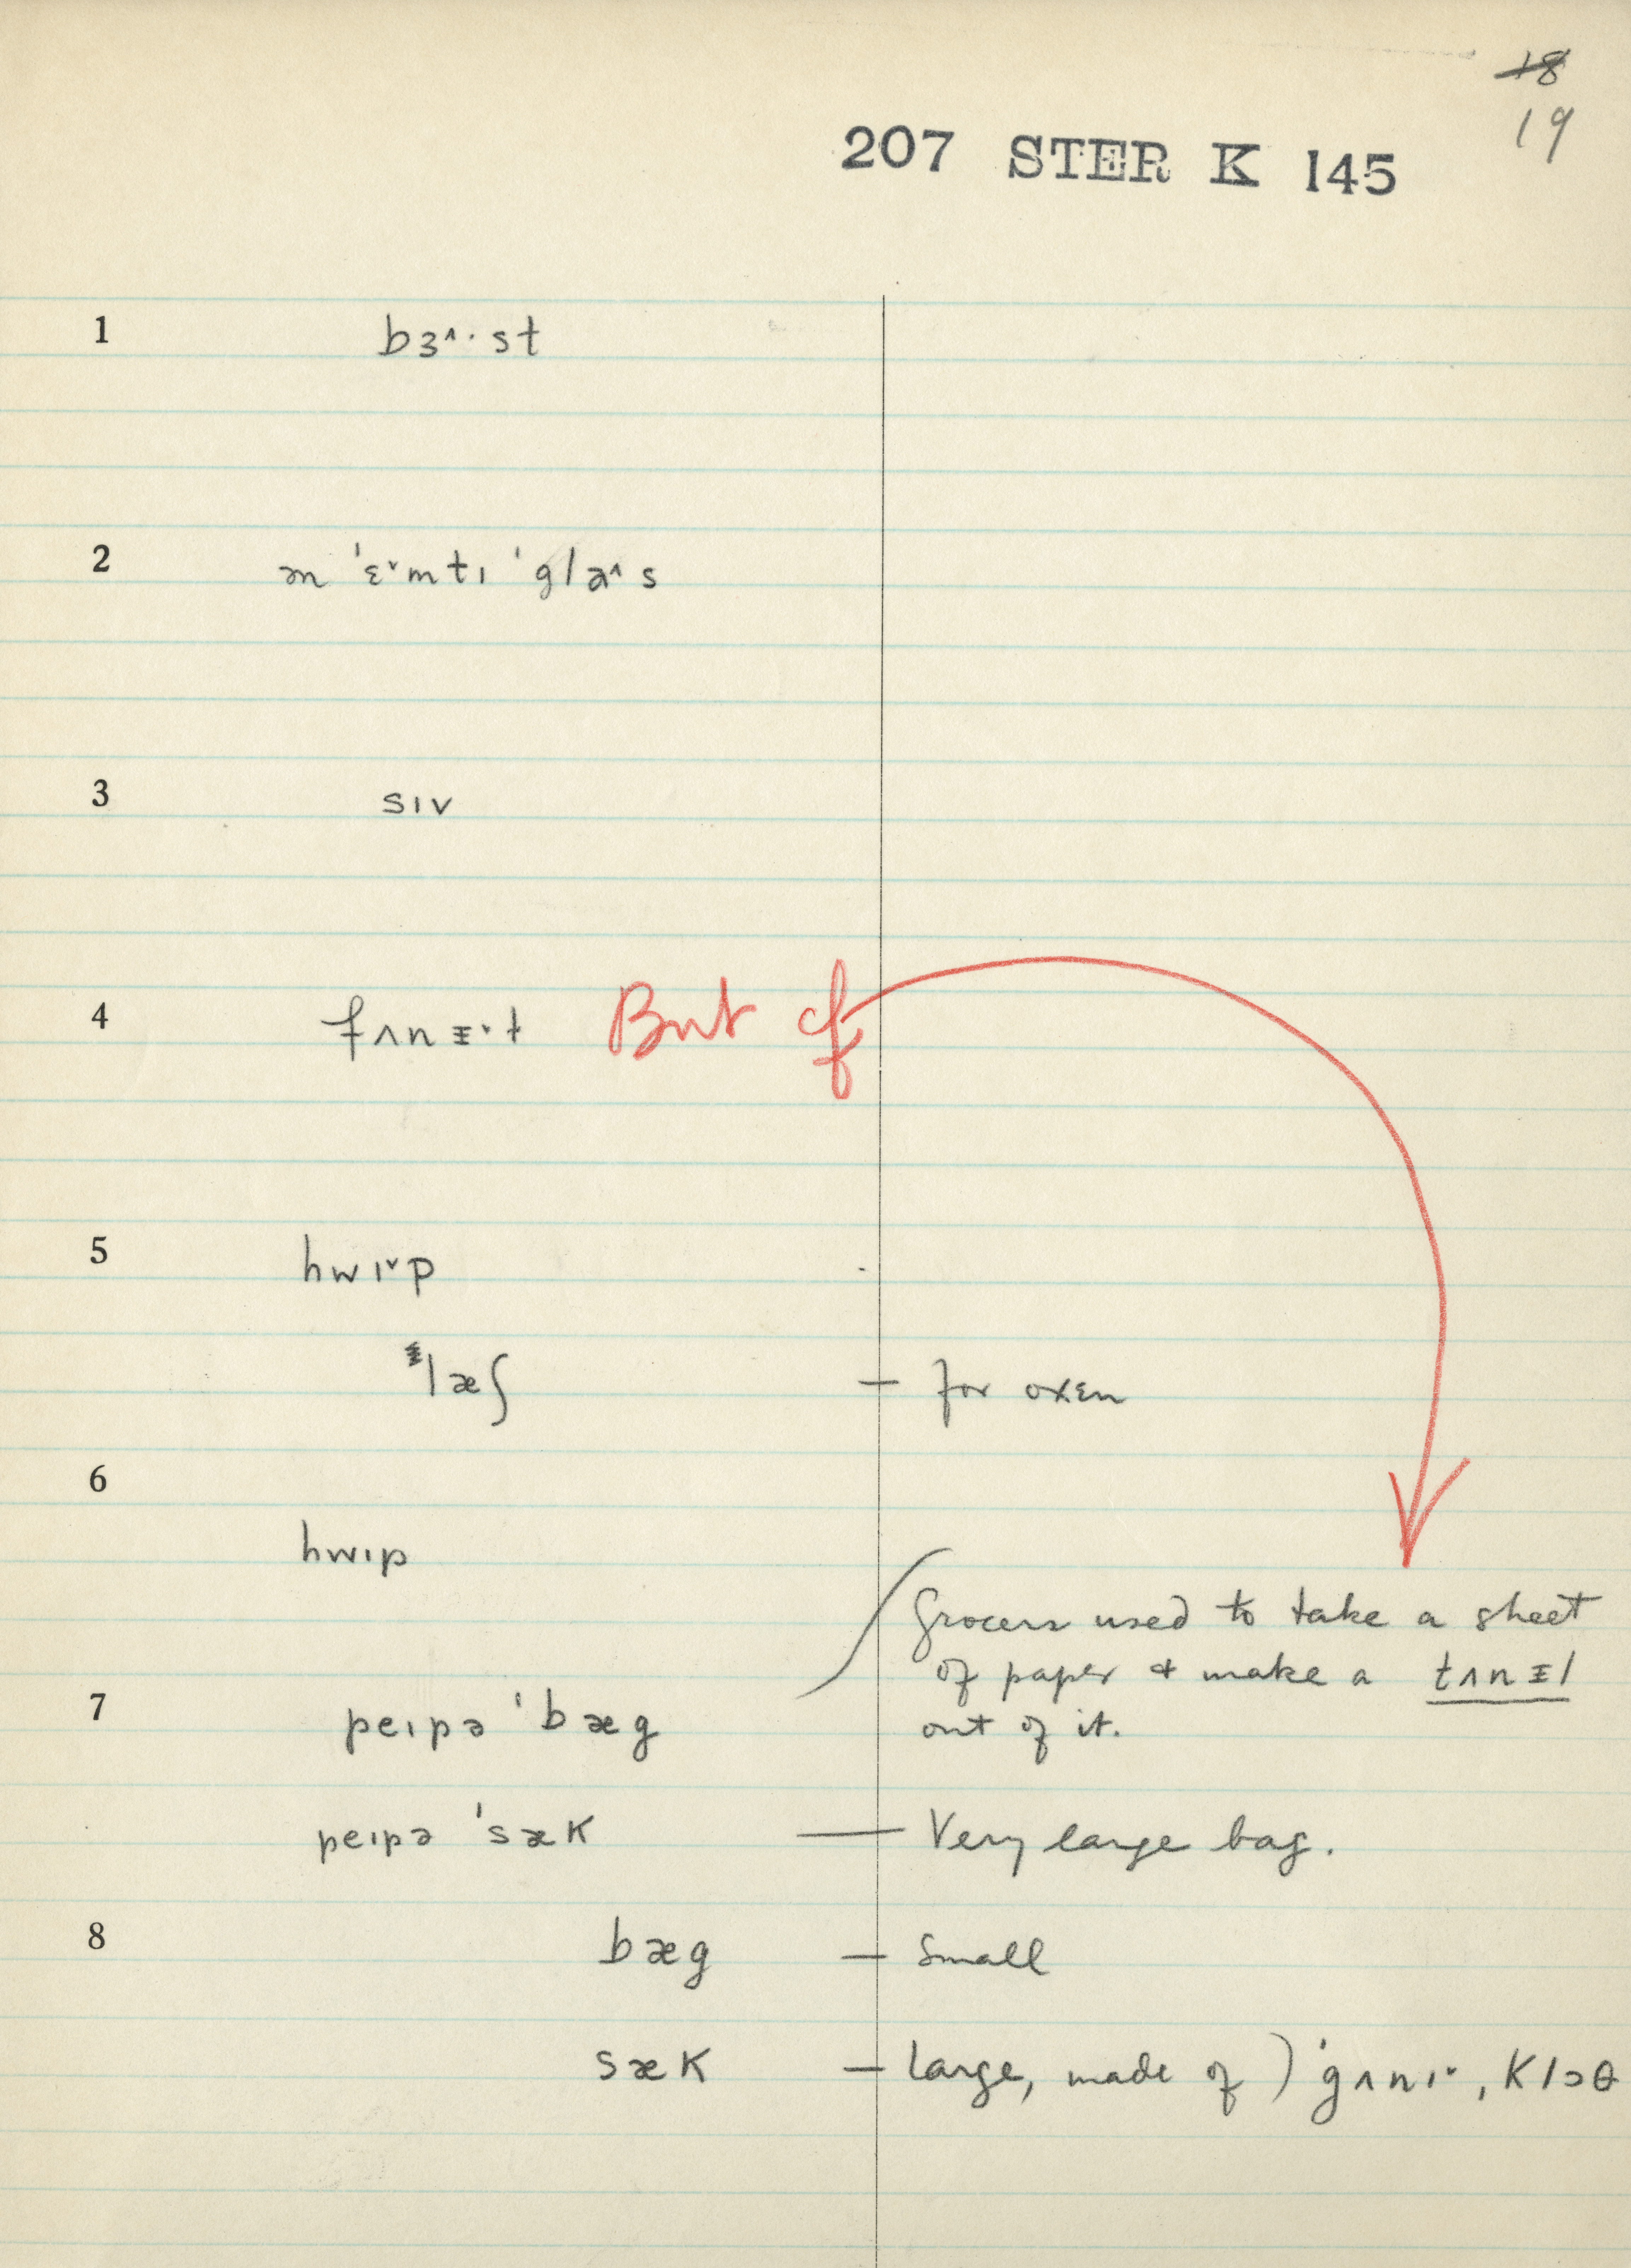 18
19
207 STER K 145
1 bɜ˄·st
2 ən ˈɛ˅mtɪ ˈgla˄s
3 sɪv
4 fʌnɪ˅t But cf
5 hwɪ˅p
læʃ — for oxen
6
hwɪp
Grocers used to take a sheet
of paper & make a tʌnɪl
7 peɪpə ˈbæg out of it.
peɪpə ˈsæk — Very large bag.
8 bæg — Small
sæk — large, made of ) ˈgʌnɪ˅, klɔθ